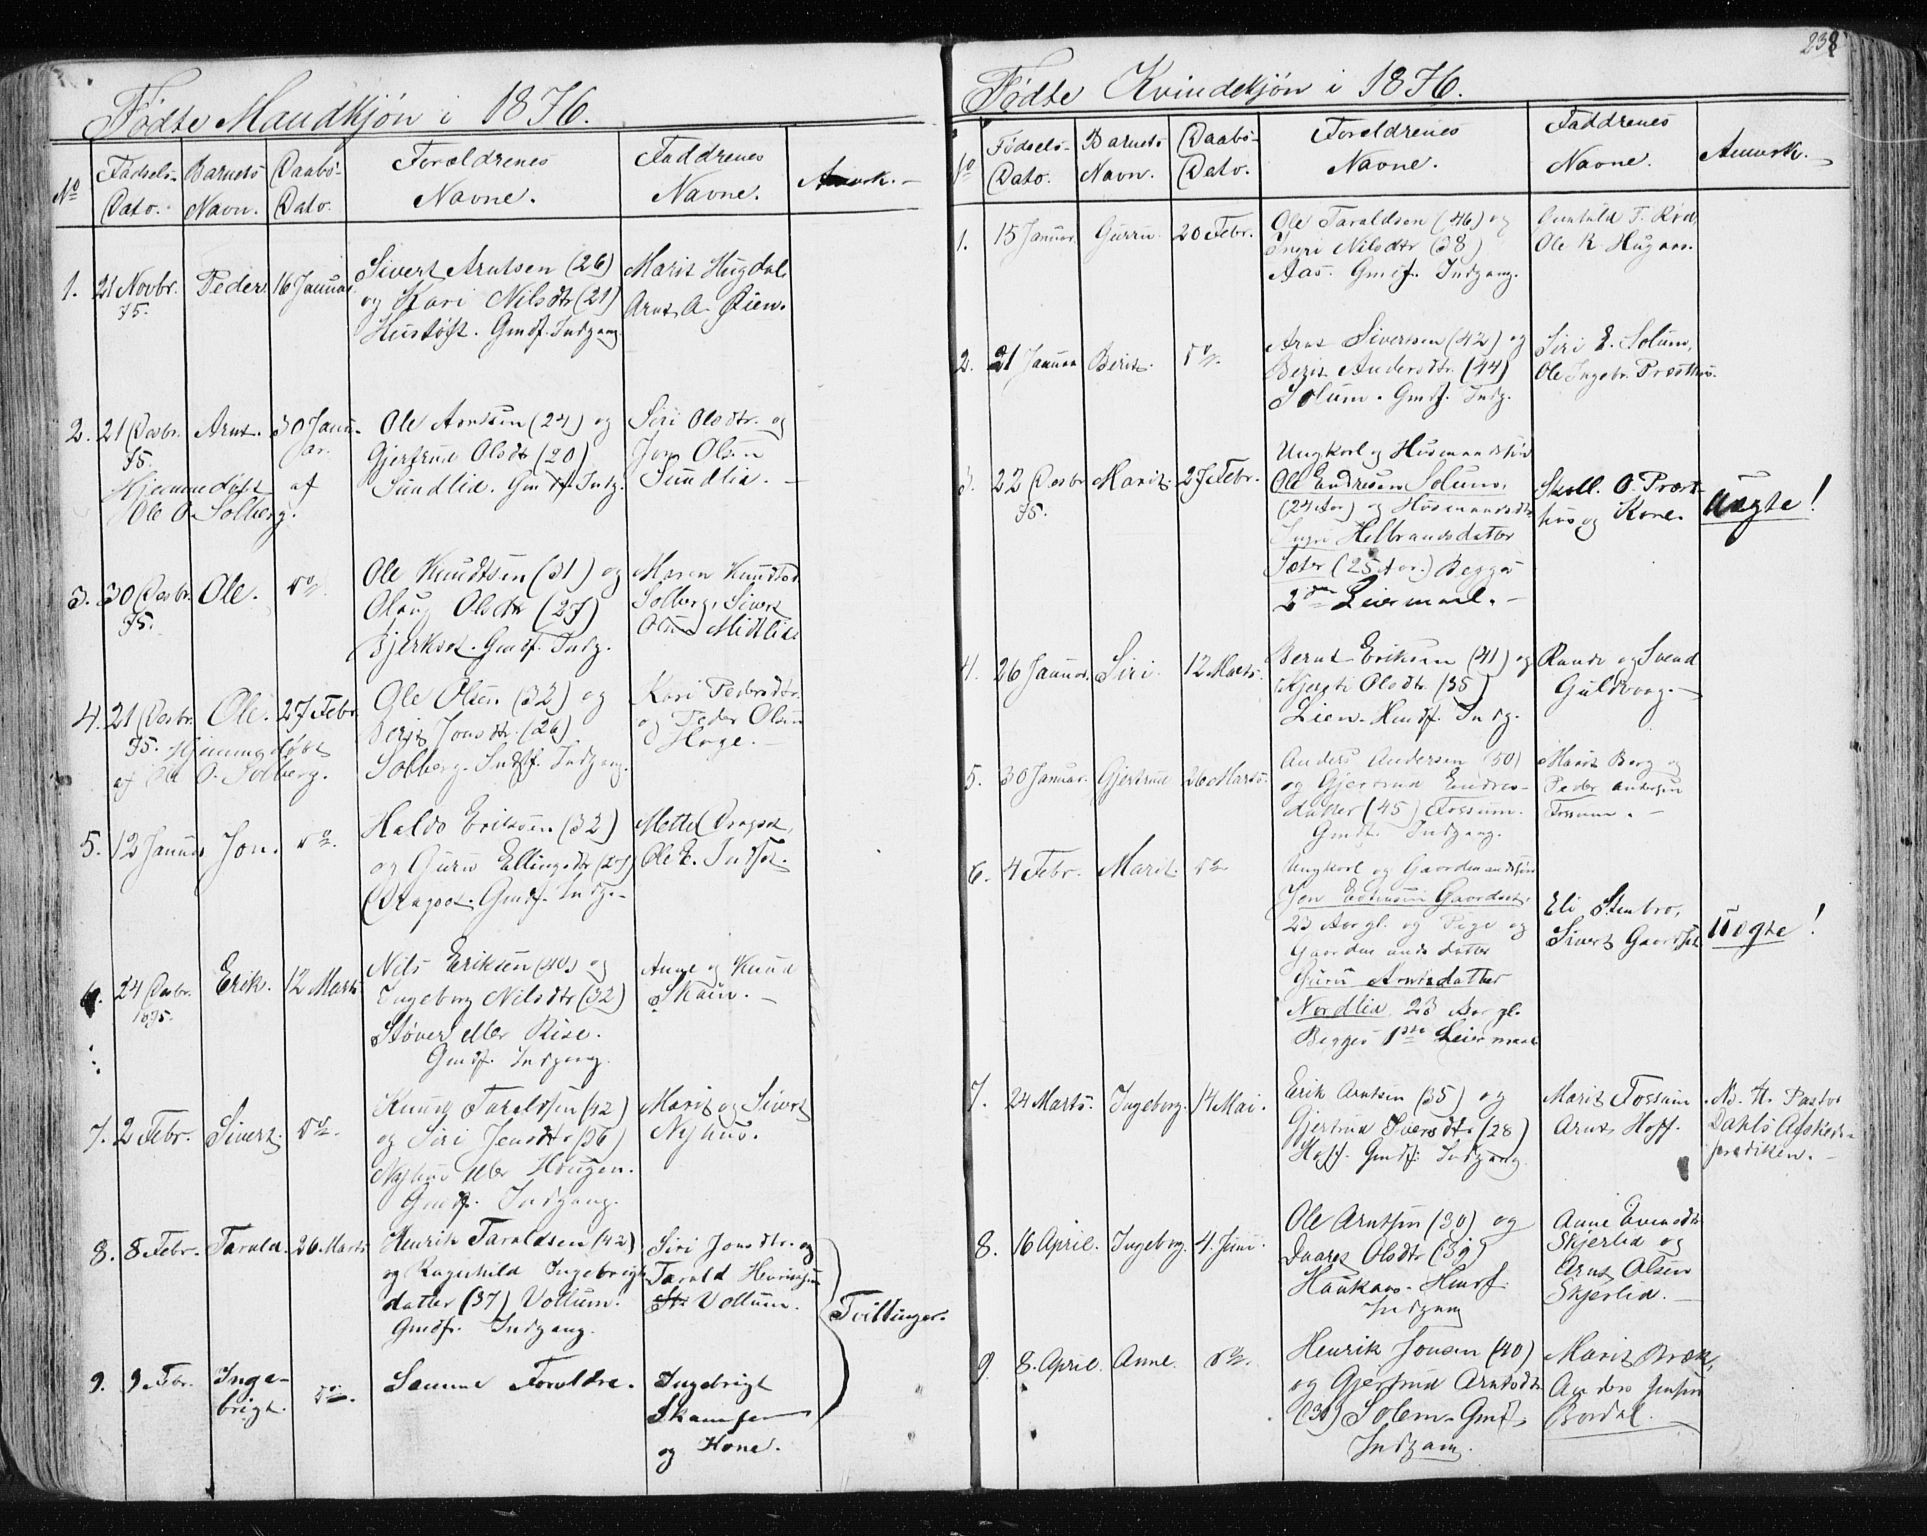 238
Fødte Mandkjøn i 1876.
No
Fødsels-
Dato.
Barnets
Navn.
Daabs-
Dato.
Forældrenes
Navne.
Faddrenes
Navne.
Anmrk.
1. 21 Novbr. 75. Peder 16 Januar
Sivert Arntsen (26)
og Kari Nilsdtr (21)
Hustøft. Gmdf. Indgang
Marit Hugdal
Arnt A. Øien.
2. 21 Decbr. 75. Arnt. 30 Januar.
Hjemmedøbt af
Ole O. Solberg.
Ole Arntsen (24) og
Gjertrud Olsdtr (20)
Sundlid. Gmdf. Indg.
Siri Olsdtr. og
Jon Olsen
Sundlid.
3. 30 Decbr. 75. Ole. do.
Ole Knudtsen (31) og
Olaug Olsdtr (27)
Bjerkset. Gmdf. Indg.
Maren Knudtsd.
Solberg, Sivert
Olsen Midtlid
4. 21 Decbr. 75. Ole. 27 Febr.
Hjemmedøbt
af Ole O. Solberg.
Ole Olsen (32) og
Berit Jonsdtr. (26)
Solberg. Indf. Indgang.
Kari Pedersdtr.
og Peder Olsen
Hage.
5. 12 Januar Jon. do.
Haldo Eriksen (32)
og Guru Ellingsdtr (27)
Dragset. Gmdf. Indg.
Mettel Dragset,
Ole E. Indset.
6. 24 Decbr. 1875. Erik. 12 Marts
Nils Eriksen (40) og
Ingeborg Nilsdtr (32)
Støver eller Rise.
Gmdf. Indgang.
Anne og Knud
Skaun.
7. 2 Febr. Sivert. do.
Knud Taraldsen (42)
og Siri Jensdtr (36)
Nyhus eller Haugen.
Gmdf. Indgang.
Marit og Sivert
Nyhus.
8. 8 Febr. Tarald. 26 Marts
Henrik Taraldsen (42)
og Ragnhild Ingebrigts
datter (37) Vollum.
Gmdf. Indgang.
Siri Jonsdtr. og
Tarald Henriksen
Vollum.
Tvillinger.
9. 9 Febr. Inge-
brigt. do.
Samme Forældre.
Ingebrigt
Skamfer
og Kone.
Fødte Kvindekjøn i 1876.
No
Fødsels-
Dato.
Barnets
Navn.
Daabs-
Dato.
Forældrenes
Navne.
Faddrenes
Navne.
Anmrk.
1. 15 Januar. Gurru. 20 Febr.
Ole Taraldsen (46) og
Ingri Nilsdtr (38)
Aas. Gmdf. Indgang.
Gunhild T. Krod
Ole R. Hugaas.
2. 21 Januar Berit. do.
Arnt Sivertsen (42) og
Berit Andersdtr. (44)
Solum. Gmdf. Indg.
Siri E. Solum,
Ole Ingebr. Præsthus.
3. 22 Decbr 75. Marit. 27 Febr.
Ungkarl og Husmandssøn
Ole Endresen Solum,
(24 Aar) og Husmandsdtr.
Ingri Helbrandsdatter
Sæter (25 Aar.) Begges
2det Leiermaal.
Skoll. O. Præst-
hus og Kone.
Uægte!
4. 26 Januar. Siri. 12 Marts.
Bernt Eriksen (41) og
Kjersti Olsdtr. (35)
Lien. Hmdf. Indg.
Rande og Svend
Guldvaag.
5. 30 Januar. Gjertrud 26 Marts.
Anders Andersen (50)
og Gjertrud Endres-
datter (45) Fossum.
Gmdf. Indgang.
Marit Berg og
Peder Andersen
Fossum.
6. 4 Febr. Marit. do
Ungkarl og Gaardmandssøn
Jon Estensen Gaardset,
23 Aar gl. og Pige og
Gaardmandsdatter
Guru Arntsdatter
Nordlid, 23 Aar gl.
Begges 1ste Leiermaal
Eli Stenbro,
Sivert Gaardset
Uægte!
7. 24 Marts. Ingeborg. 14 Mai.
Erik Arntsen (35) og
Gjertrud Iversdtr (28)
Hoff. Gmdf. Indgang.
Marit Fossum
Arnt Hoff.
N. H. Pastor
Dahls Afskeds-
prædiken.
8. 16 April. Ingeborg. 4. Juni.
Ole Arntsen (30) og
Olsdtr (39)
Haukaas. Hmdf.
Indgang
Anne Evensdtr
Skjerlid og
Arnt Olsen
Skjerlid.
9. 8. April. Anne. do.
Henrik Jonsen (40)
og Gjertrud Arntsdtr
(30) Solem. Gmdf.
Indgang.
Marit Bræk,
Anders Jensen
Bordal.